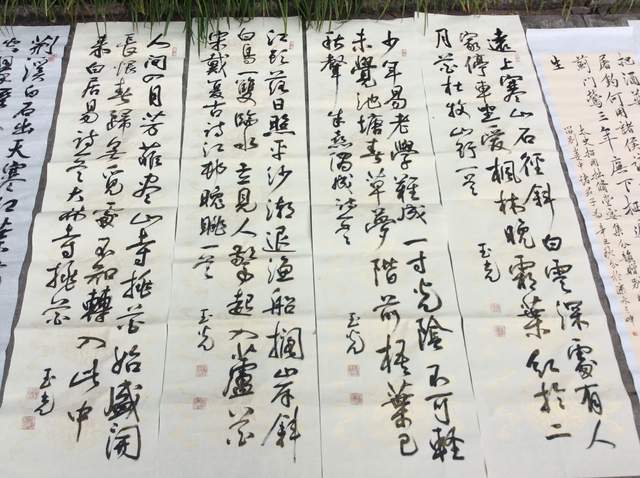 遠上寒山石徑斜白雲深處有人
家停車坐愛楓林晚霜葉紅於二
月花杜牧山行一首
玉光
少年易老學難成一寸光陰不可輕
未覺池塘春草夢階前梧葉已
秋聲 朱熹偶成詩一首
玉光
江頭落日照平沙潮退漁船擱岸斜
白鳥一雙臨水立見人驚起入蘆花
宋戴復古詩江村晚眺一首
玉光
人間四月芳菲盡山寺桃花始盛開
長恨春歸無覓處不知轉入此中
來白居易詩一首大林寺桃花
玉光
荊溪白石出天寒紅葉